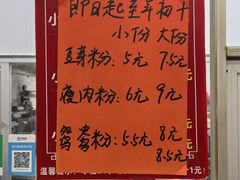 即日起至年初十
小份 大份
豆芽粉:5元 7.5元
瘦肉粉:6元 9元
鸳鸯粉:5.5元 8元
8.5元
小
温馨提示
1元!